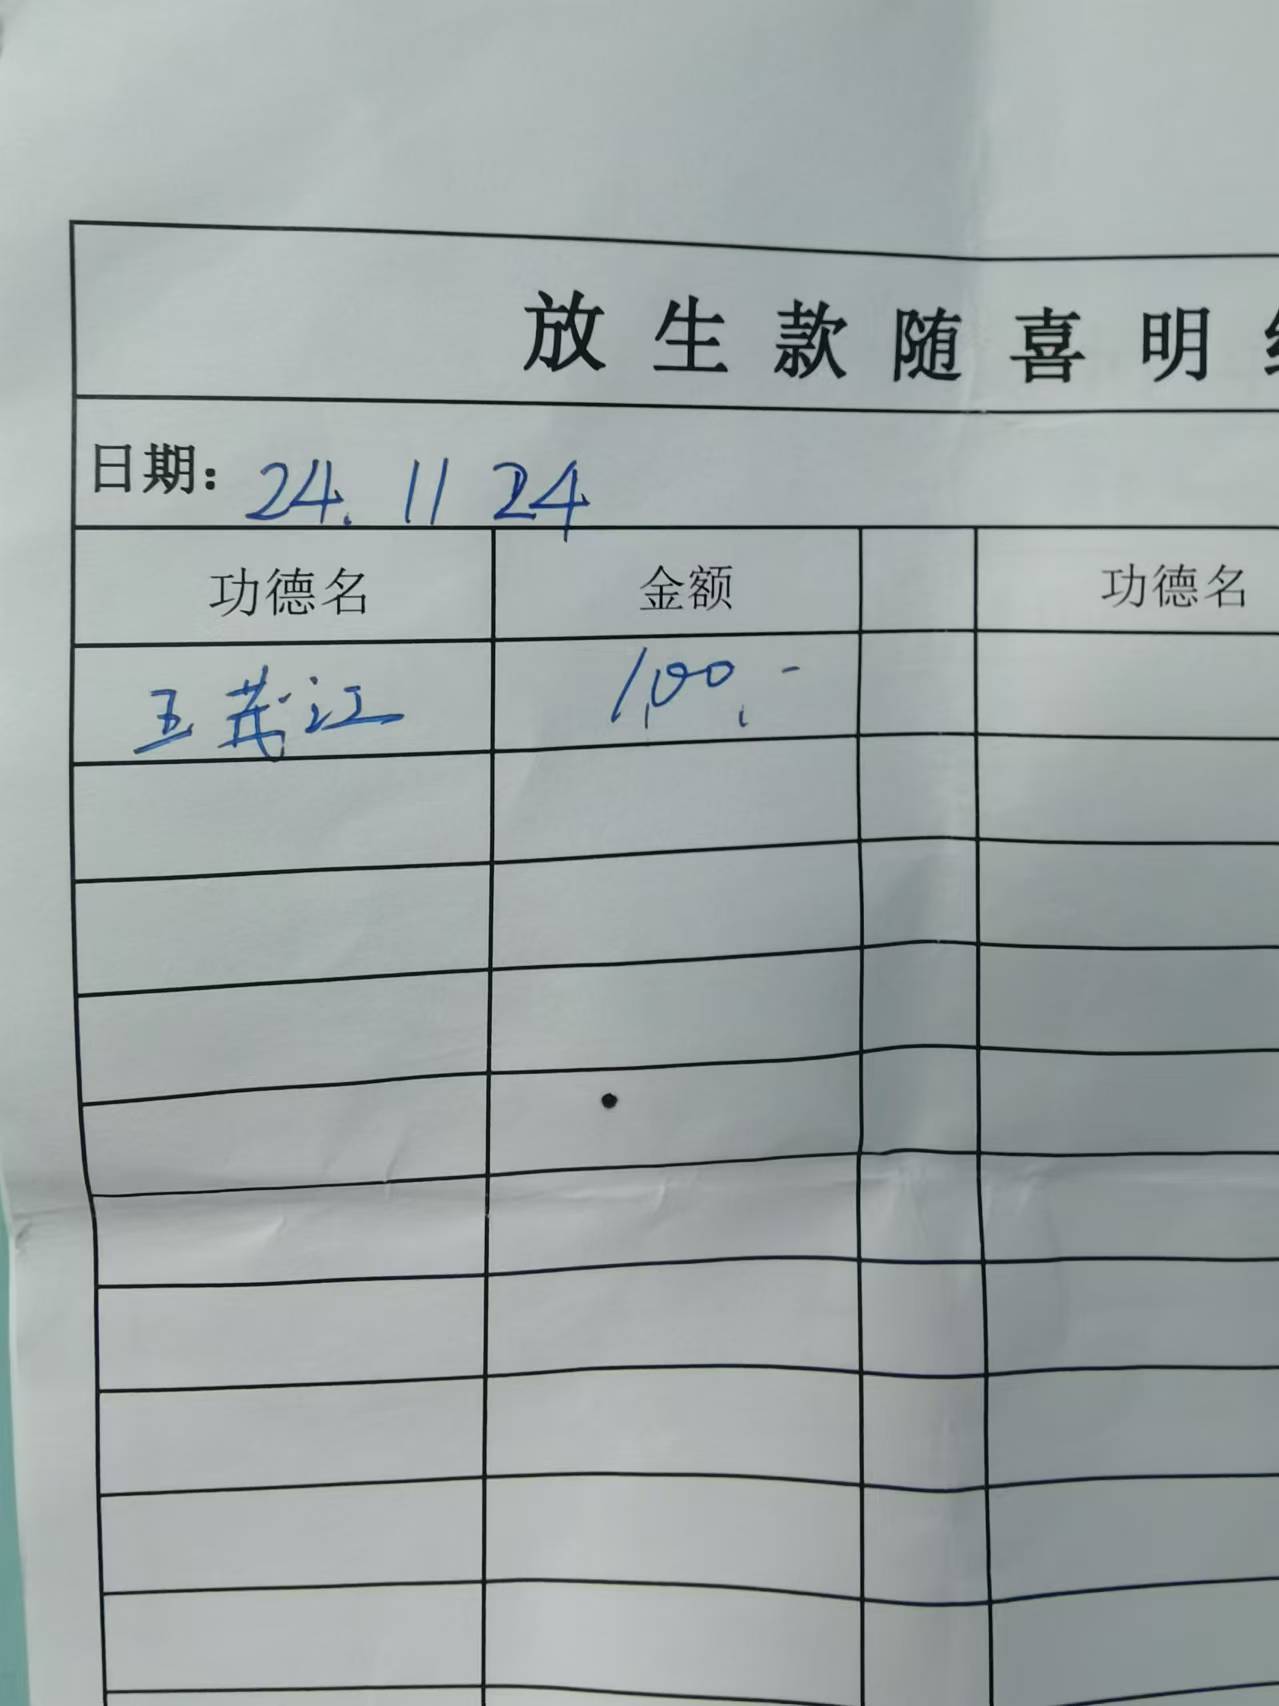 放生款随喜明
日期: 24. 11 24
功德名 金额 功德名
王茂江 100.-